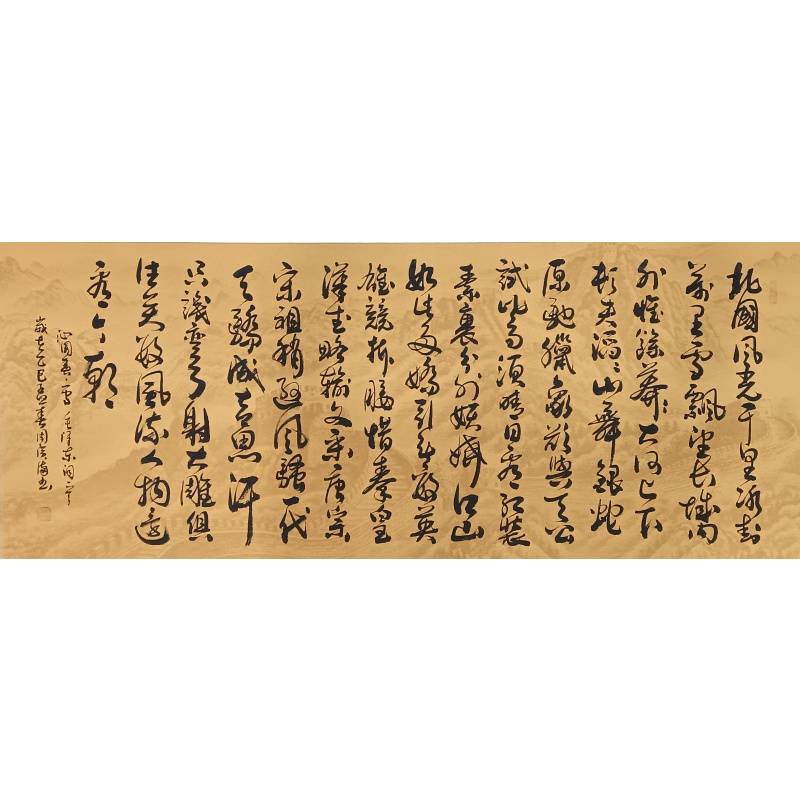 北國風光千里冰封
萬里雪飄望長城內
外惟餘莽々大河上下
頓失滔々山舞銀蛇
原馳臘象欲與天公
試比高須晴日看紅裝
素裹分外妖嬈江山
如此多嬌引無數英
雄競折腰惜秦皇
漢武略輸文采唐宗
宋祖稍遜風騷一代
天驕成吉思汗
只識彎弓射大雕俱
往矣數風流人物還
看今朝
沁園春雪毛澤東詞一首
歲在乙巳孟春周海書